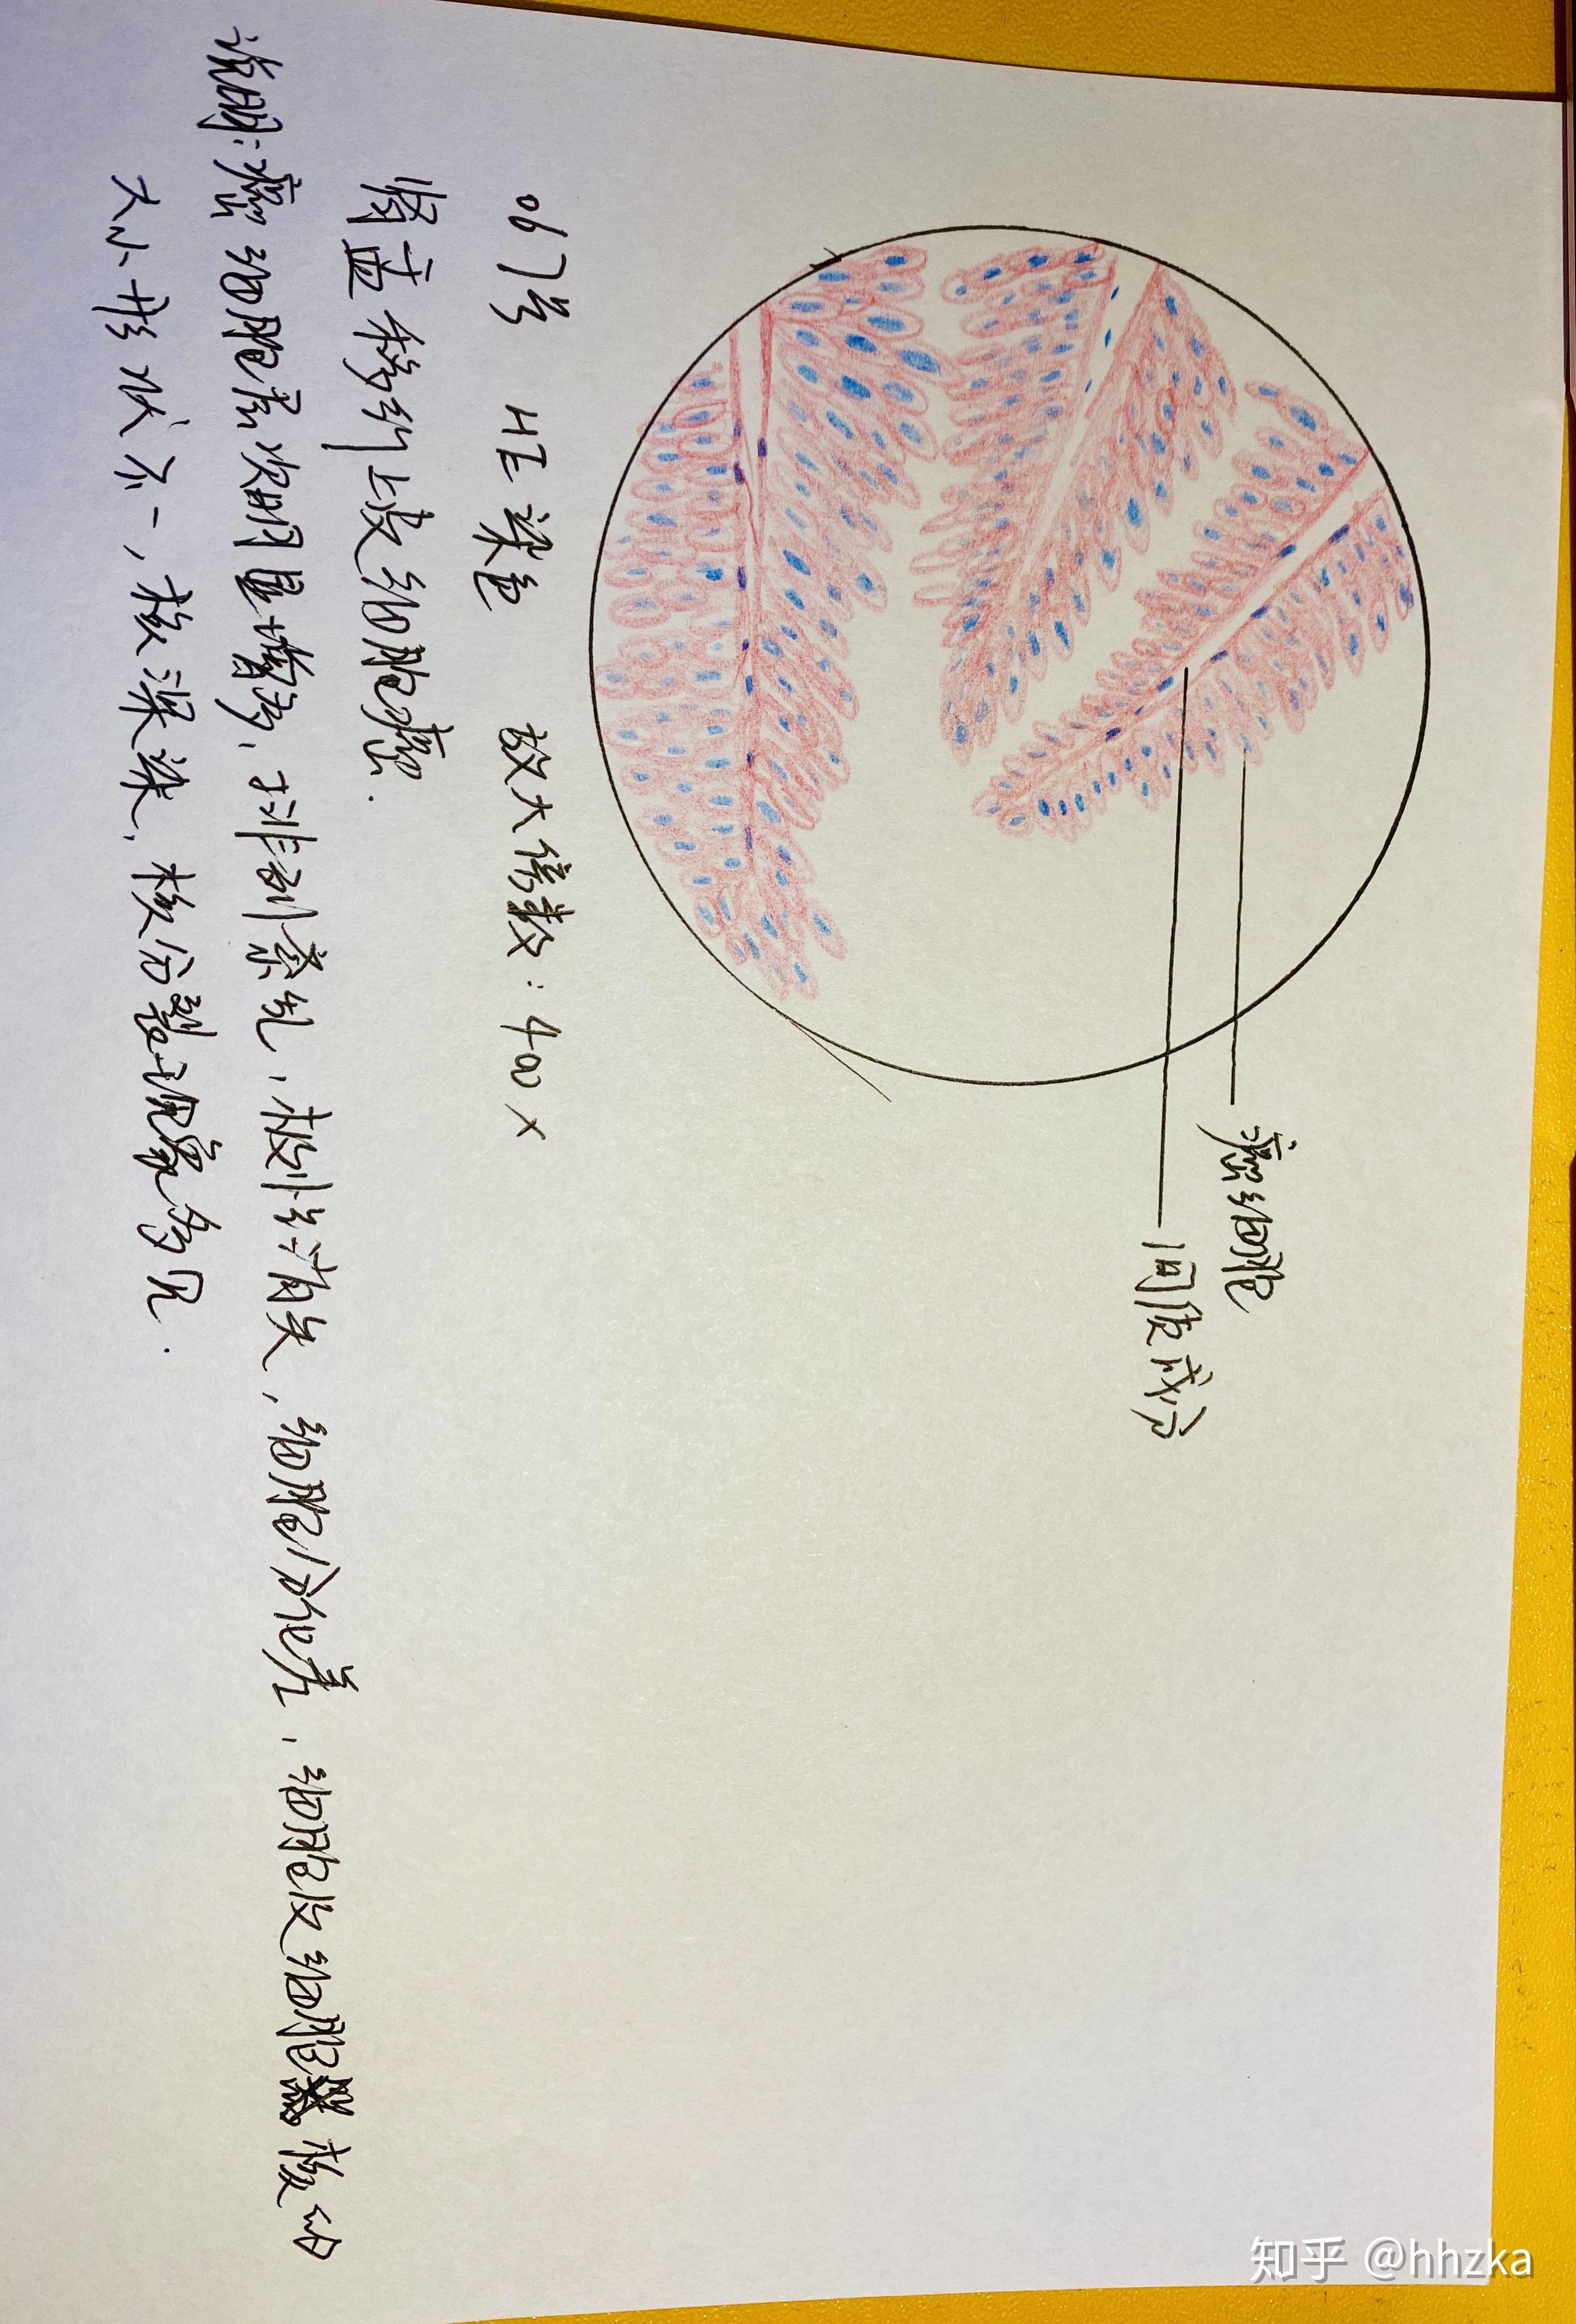 癌细胞
间质成分
067号 HE染色 放大倍数：400×
肾盂移行上皮细胞癌.
说明：癌细胞层次明显增多，排列紊乱，极性消失，细胞分化差，细胞及细胞核的
大小形状不一，核深染，核分裂现象多见.
知乎 @hhzka